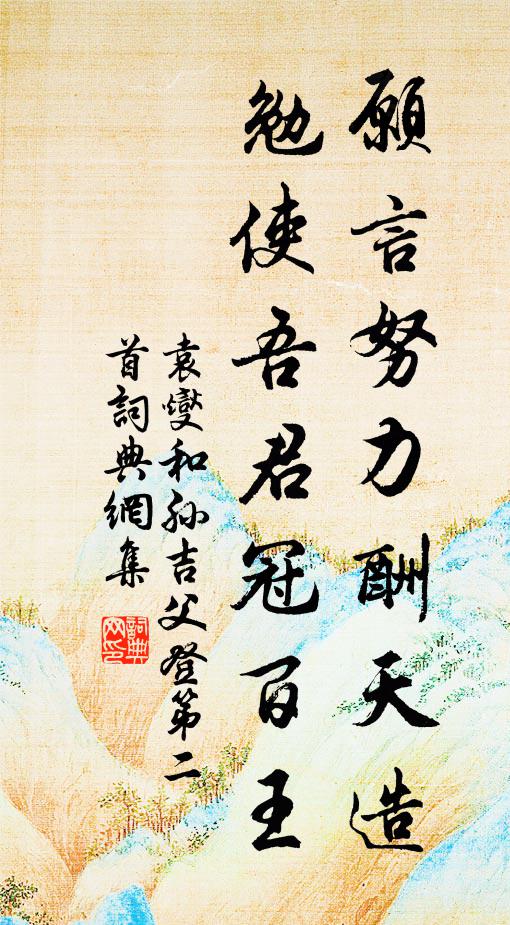 願言努力酬天造
勉使吾君冠百王
袁燮和孫吉父登第二
首詞典網集
詞典
网印